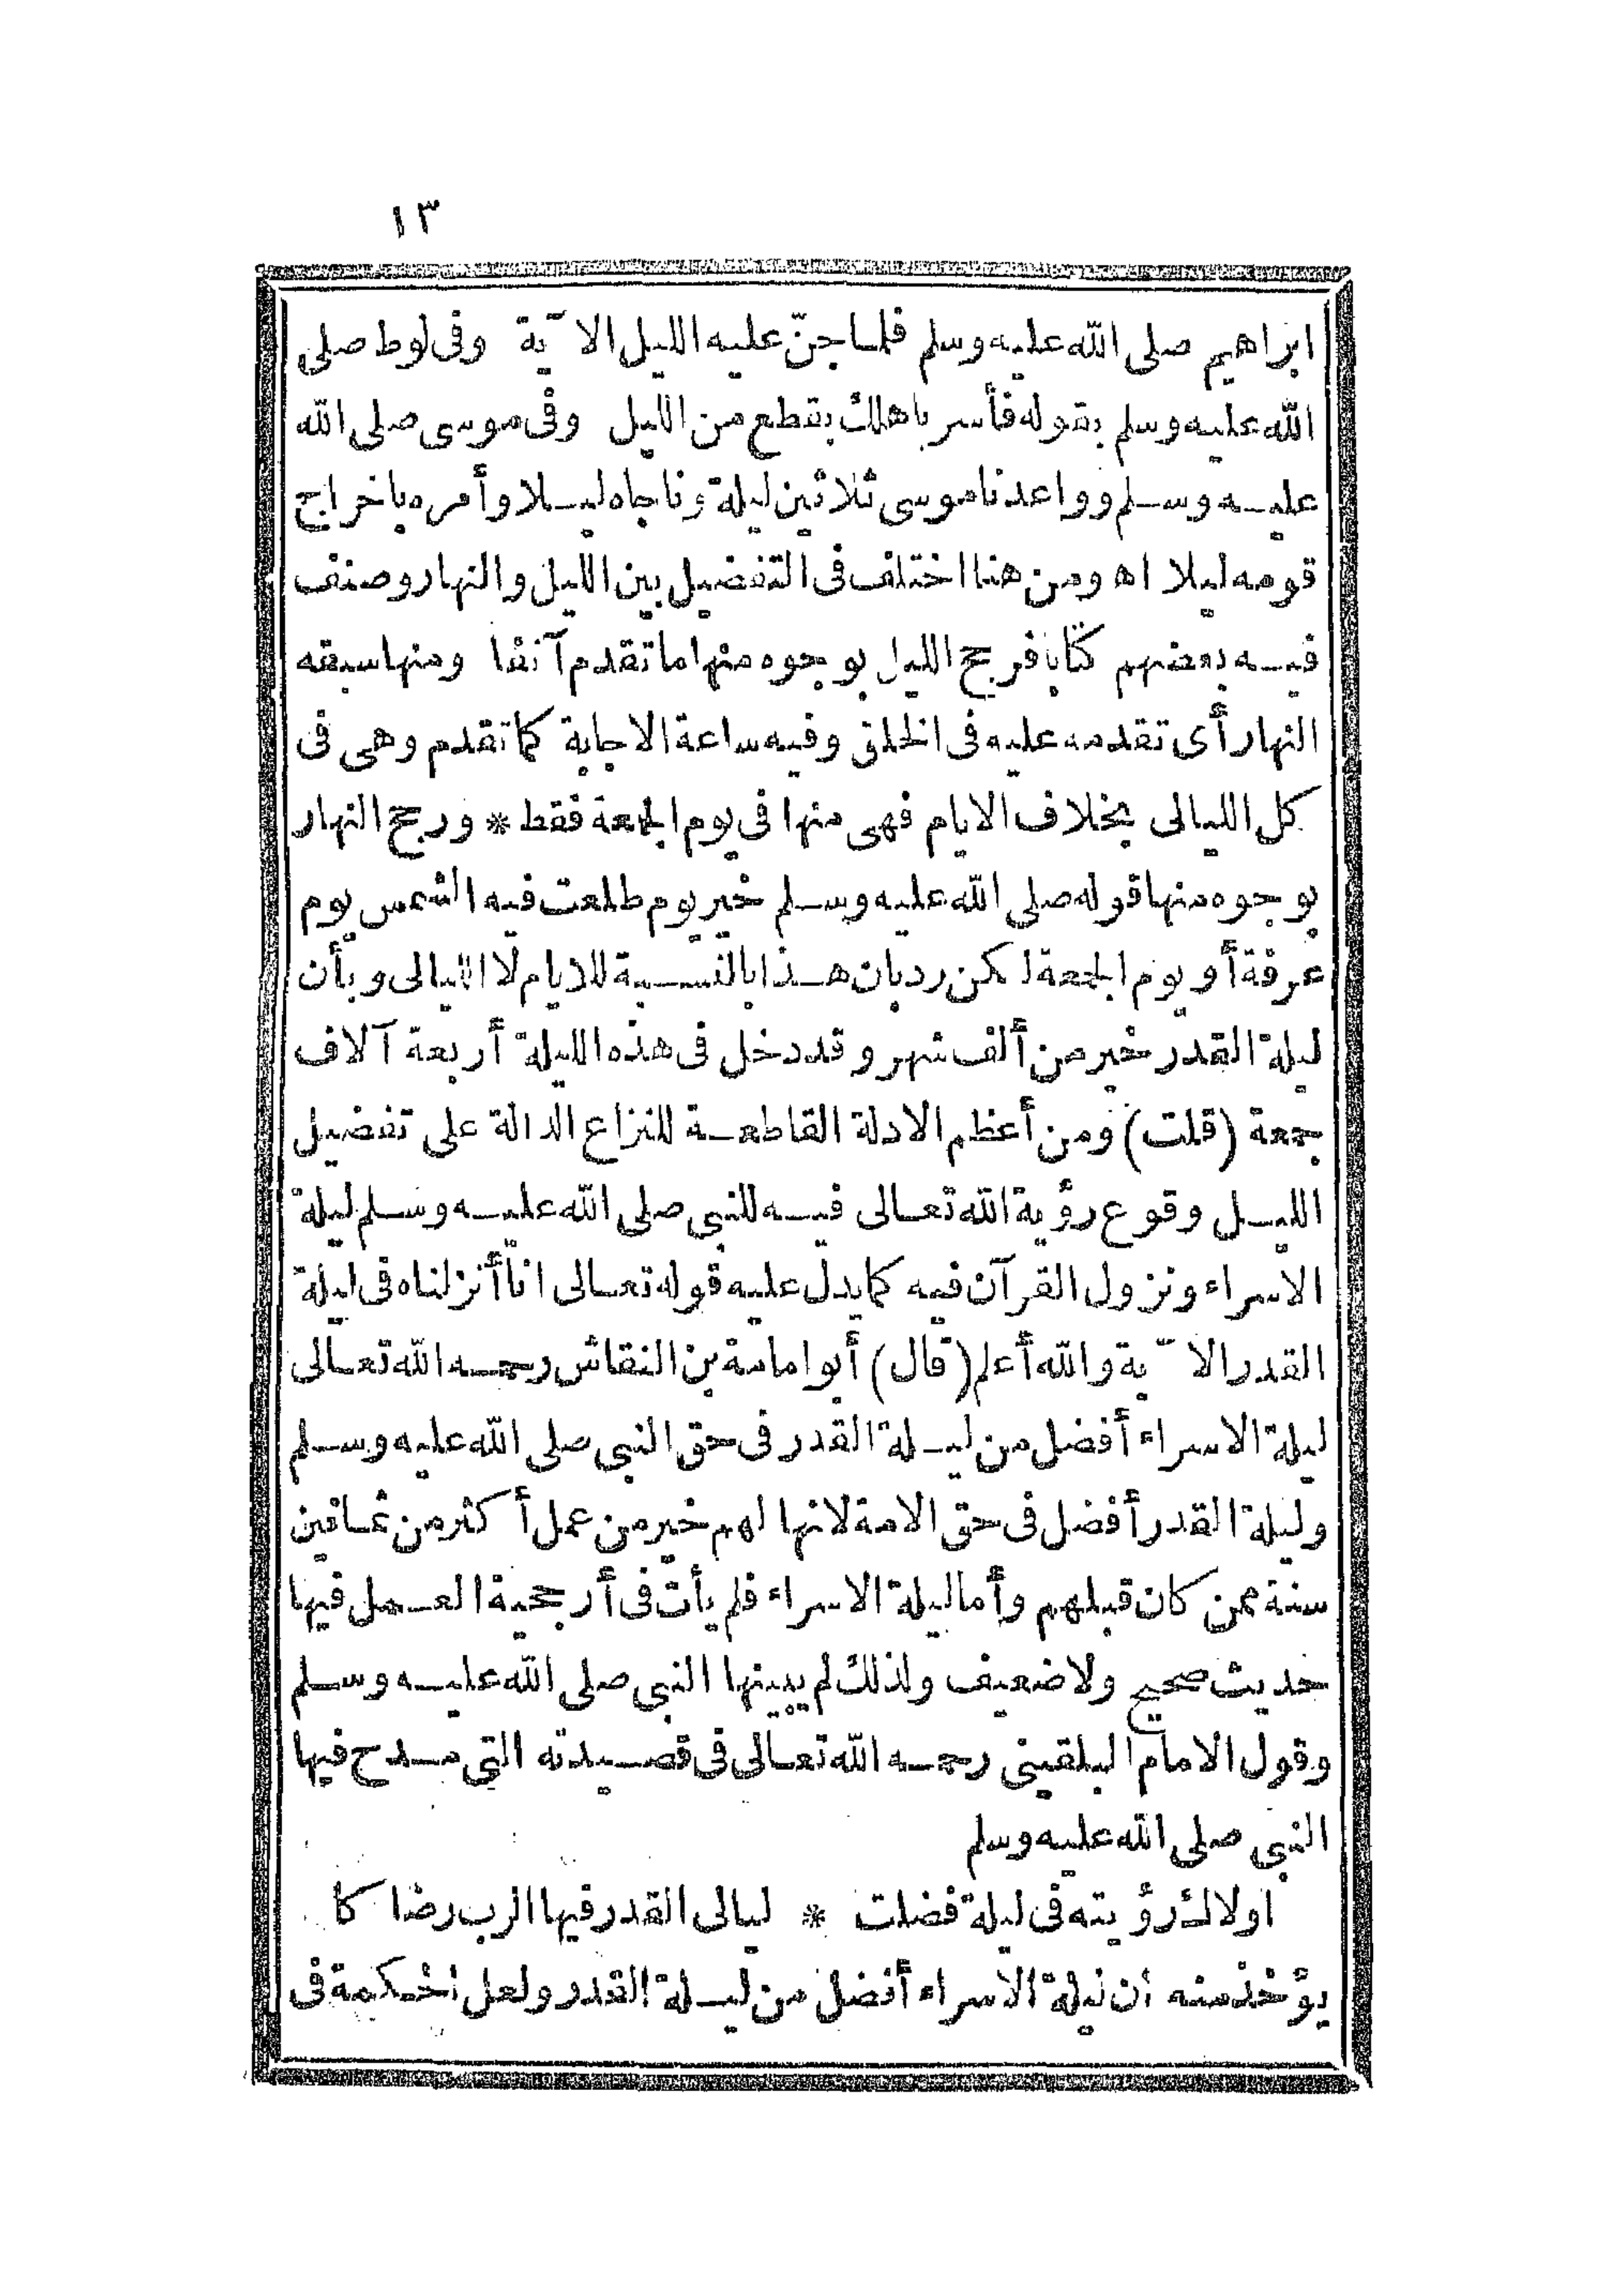 ١٣
ابراهيم صلى الله عليه وسلم فلما جنّ عليه الليل الآية وفى لوط صلى
الله عليه وسلم بقوله فأسر باهلك بقطع من الليل وفى موسى صلى الله
عليه وسلم وواعدنا موسى ثلاثين ليلة وناجاه ليلا وأمره باخراج
قومه ليلا اه ومن هنا اختلف فى التفضيل بين الليل والنهار وصنف
فيه بعضهم كتابا فرجح الليل بوجوه منها ما تقدم آنفا ومنها سبقه
النهار أى تقدمه عليه فى الخلق وفيه ساعة الاجابة كما تقدم وهى فى
كل الليالى بخلاف الايام فهى منها فى يوم الجمعة فقط * ورجح النهار
بوجوه منها قوله صلى الله عليه وسلم خير يوم طلعت فيه الشمس يوم
عرفة أو يوم الجمعة لكن رد بان هذا بالنسبة للايام لا الليالى وبأن
ليلة القدر خير من ألف شهر وقد دخل فى هذه الليلة أربعة آلاف
جمعة (قلت) ومن أعظم الادلة القاطعة للنزاع الدالة على تفضيل
الليل وقوع رؤية الله تعالى فيه للنبى صلى الله عليه وسلم ليلة
الاسراء ونزول القرآن فيه كما يدل عليه قوله تعالى انا أنزلناه فى ليلة
القدر الآية والله أعلم (قال) أبو امامة بن النقاش رحمه الله تعالى
ليلة الاسراء أفضل من ليلة القدر فى حق النبى صلى الله عليه وسلم
وليلة القدر أفضل فى حق الامة لانها لهم خير من عمل أكثر من ثمانين
سنة ممن كان قبلهم وأما ليلة الاسراء فلم يأت فى أرجحية العمل فيها
حديث صحيح ولا ضعيف ولذلك لم يبينها النبى صلى الله عليه وسلم
وقول الامام البلقينى رحمه الله تعالى فى قصيدته التى مدح فيها
النبى صلى الله عليه وسلم
اولاك رؤيته فى ليلة فضلت * ليالى القدر فيها الرب رضا كا
يؤخذ منه أن ليلة الاسراء أفضل من ليلة القدر ولعل الحكمة فى